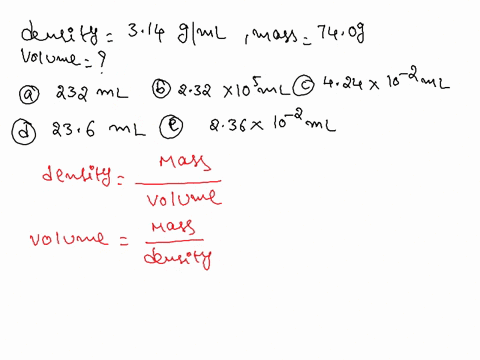 density = 3.14 g/mL , mass = 74.0g
Volume = ?
ⓐ 232 mL ⓑ 2.32 ×10⁵ mL ⓒ 4.24 × 10⁻² mL
ⓓ 23.6 mL ⓔ 2.36 × 10⁻² mL
density = Mass
volume
volume = Mass
density